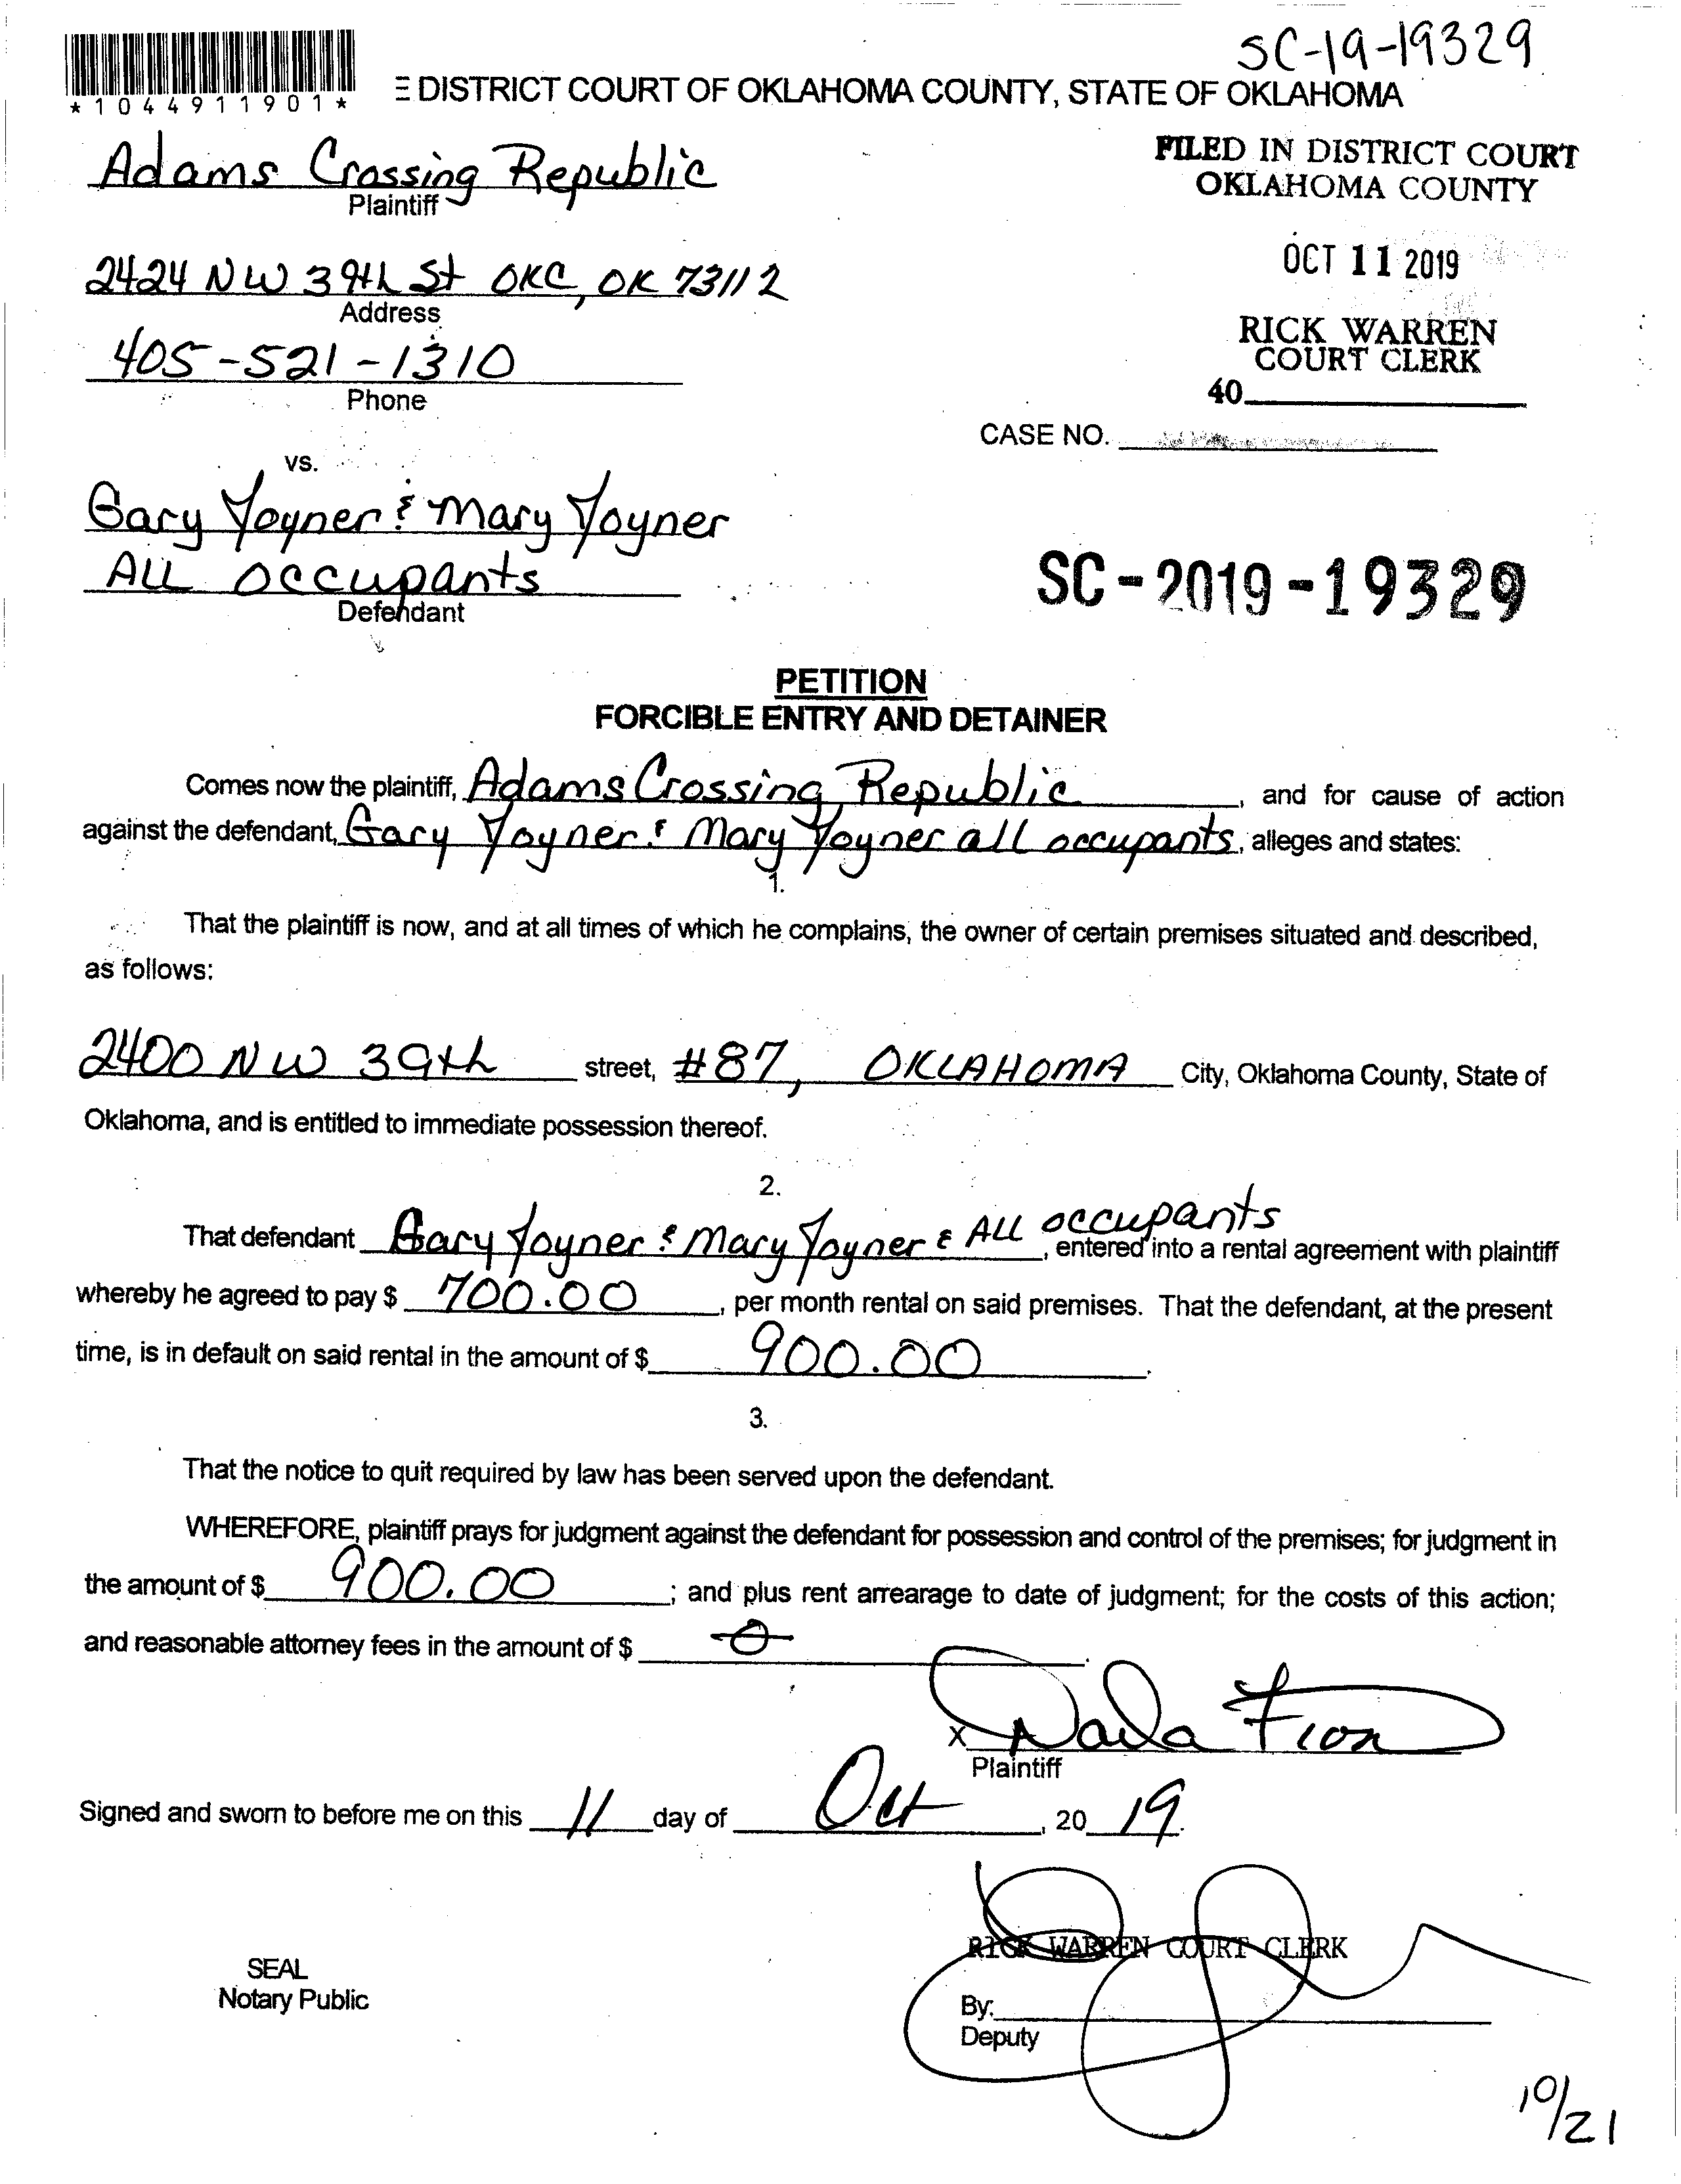 SC-19-19329
*1044911901*
E DISTRICT COURT OF OKLAHOMA COUNTY, STATE OF OKLAHOMA
Adams Crossing Republic
Plaintiff
FILED IN DISTRICT COURT
OKLAHOMA COUNTY
2424 NW 39th St OKC, OK 73112
Address
OCT 11 2019
405-521-1310
Phone
RICK WARREN
COURT CLERK
40
CASE NO.
vs.
Gary Joyner & Mary Joyner
ALL Occupants
Defendant
SC-2019-19329
PETITION
FORCIBLE ENTRY AND DETAINER
Comes now the plaintiff, Adams Crossing Republic, and for cause of action
against the defendant, Gary Joyner & Mary Joyner all occupants, alleges and states:
1.
That the plaintiff is now, and at all times of which he complains, the owner of certain premises situated and described,
as follows:
2400 NW 39th street, #87, OKLAHOMA City, Oklahoma County, State of
Oklahoma, and is entitled to immediate possession thereof.
2.
That defendant Gary Joyner & Mary Joyner & ALL occupants, entered into a rental agreement with plaintiff
whereby he agreed to pay $ 700.00, per month rental on said premises. That the defendant, at the present
time, is in default on said rental in the amount of $ 900.00.
3.
That the notice to quit required by law has been served upon the defendant.
WHEREFORE, plaintiff prays for judgment against the defendant for possession and control of the premises; for judgment in
the amount of $ 900.00; and plus rent arrearage to date of judgment; for the costs of this action;
and reasonable attorney fees in the amount of $ 0.
X
Plaintiff
Signed and sworn to before me on this 11 day of Oct, 20 19.
RICK WARREN COURT CLERK
SEAL
Notary Public
By:
Deputy
10/21